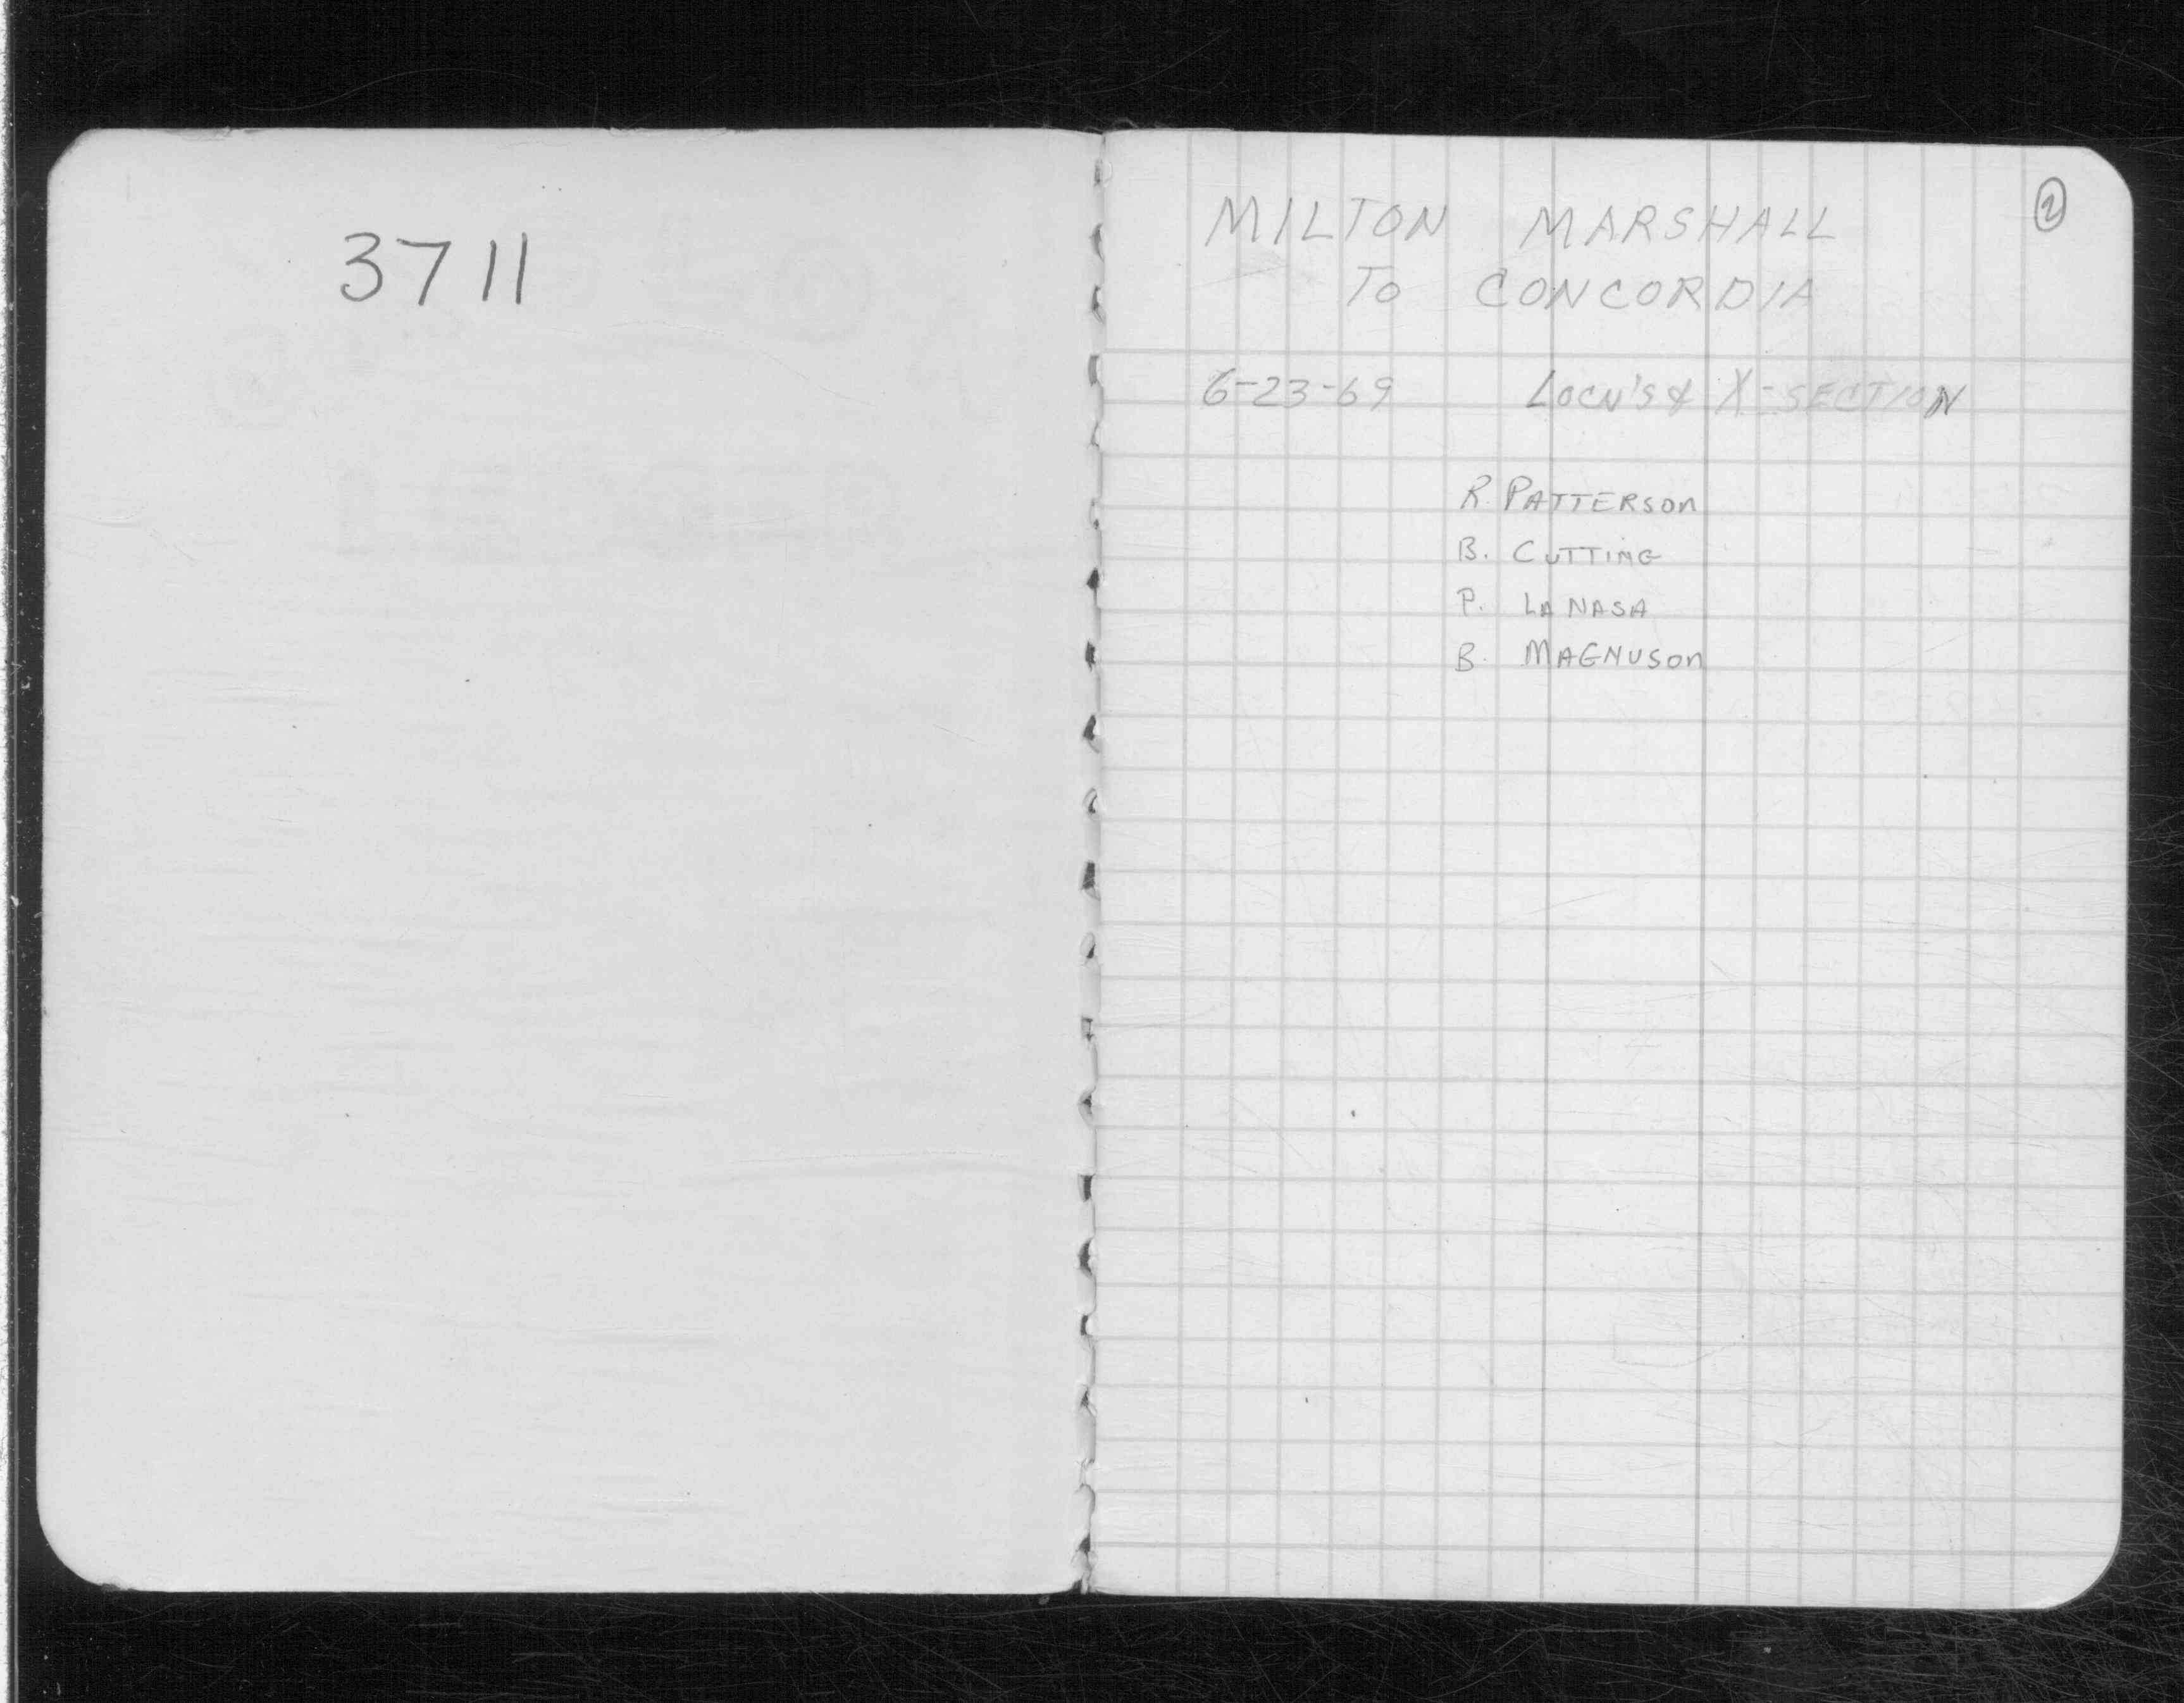 3711
②
MILTON MARSHALL
TO CONCORDIA
6-23-69 LOCN'S & X-SECTION
R. PATTERSON
B. CUTTING
P. LA NASA
B. MAGNUSON